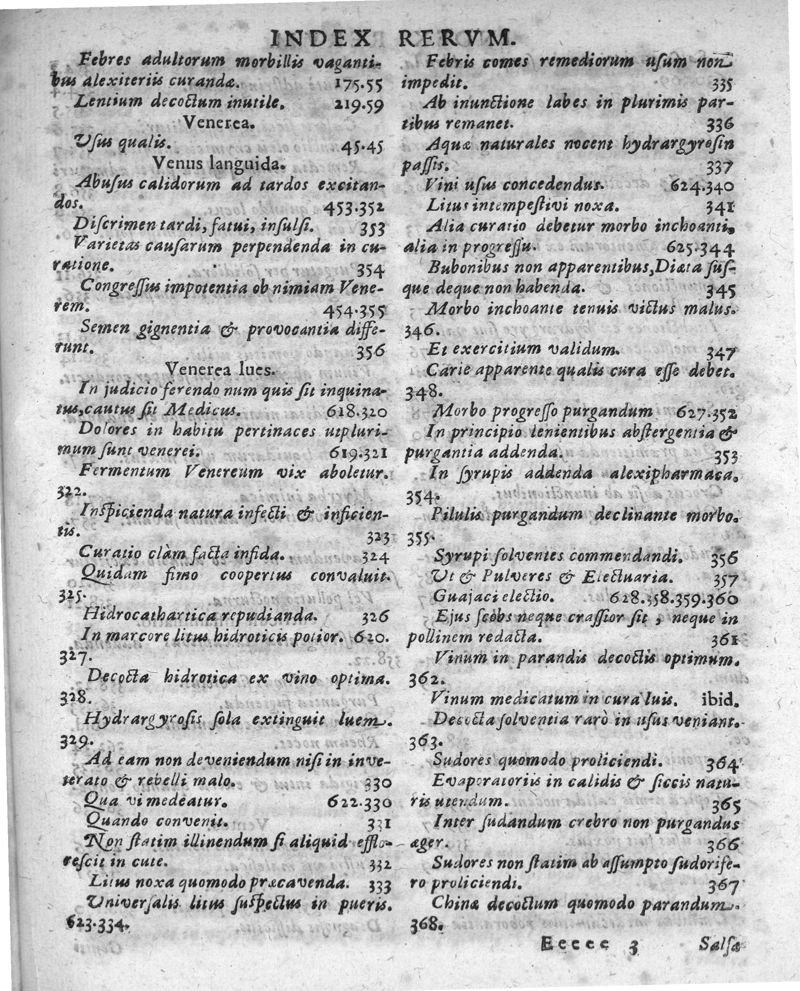 INDEX RERVM.
Febres adultorum morbillis vaganti-
bus alexiteriis curandæ. 175.55
Lentium decoctum inutile. 219.59
Venerea.
Vſus qualis. 45.45
Venus languida.
Abuſus calidorum ad tardos excitan-
dos. 453.352
Diſcrimen tardi, fatui, inſulſi. 353
Varietas cauſarum perpendenda in cu-
ratione. 354
Congreſſus impotentia ob nimiam Vene-
rem. 454.355
Semen gignentia & provocantia diffe-
runt. 356
Venerea lues.
In judicio ferendo num quis ſit inquina-
tus, cautus ſit Medicus. 618.320
Dolores in habitu pertinaces utpluri-
mum ſunt venerei. 619.321
Fermentum Venereum vix aboletur.
322.
Inſpicienda natura infecti & inficien-
tis. 323
Curatio clàm facta infida. 324
Quidam fimo coopertus convaluit.
325.
Hidrocathartica repudianda. 326
In marcore litus hidroticis potior. 620.
327.
Decocta hidrotica ex vino optima.
328.
Hydrargyroſis ſola extinguit luem.
329.
Ad eam non deveniendum niſi in inve-
terato & rebelli malo. 330
Qua vi medeatur. 622.330
Quando convenit. 331
Non ſtatim illinendum ſi aliquid efflo-
reſcit in cute. 332
Litus noxa quomodo præcavenda. 333
Univerſalis litus ſuſpectus in pueris.
623.334.
Febris comes remediorum uſum non
impedit. 335
Ab inunctione labes in plurimis par-
tibus remanet. 336
Aquæ naturales nocent hydrargyroſin
paſſis. 337
Vini uſus concedendus. 624.340
Litus intempeſtivi noxa. 341
Alia curatio debetur morbo inchoanti,
alia in progreſſu. 625.344
Bubonibus non apparentibus, Diæta ſuſ-
que deque non habenda. 345
Morbo inchoante tenuis victus malus.
346.
Et exercitium validum. 347
Carie apparente qualis cura eſſe debet.
348.
Morbo progreſſo purgandum 627.352
In principio lenientibus abſtergentia &
purgantia addenda. 353
In ſyrupis addenda alexipharmaca.
354.
Pilulis purgandum declinante morbo.
355.
Syrupi ſolventes commendandi. 356
Ut & Pulveres & Electuaria. 357
Guajaci electio. 628.358.359.360
Ejus ſcobs neque craſſior ſit, neque in
pollinem redacta. 361
Vinum in parandis decoctis optimum.
362.
Vinum medicatum in cura luis. ibid.
Decocta ſolventia rarò in uſus veniant.
363.
Sudores quomodo proliciendi. 364
Evaporatoriis in calidis & ſiccis natu-
ris utendum. 365
Inter ſudandum crebro non purgandus
æger. 366
Sudores non ſtatim ab aſſumpto ſudorife-
ro proliciendi. 367
Chinæ decoctum quomodo parandum.
368.
Eeeee 3 Salſæ